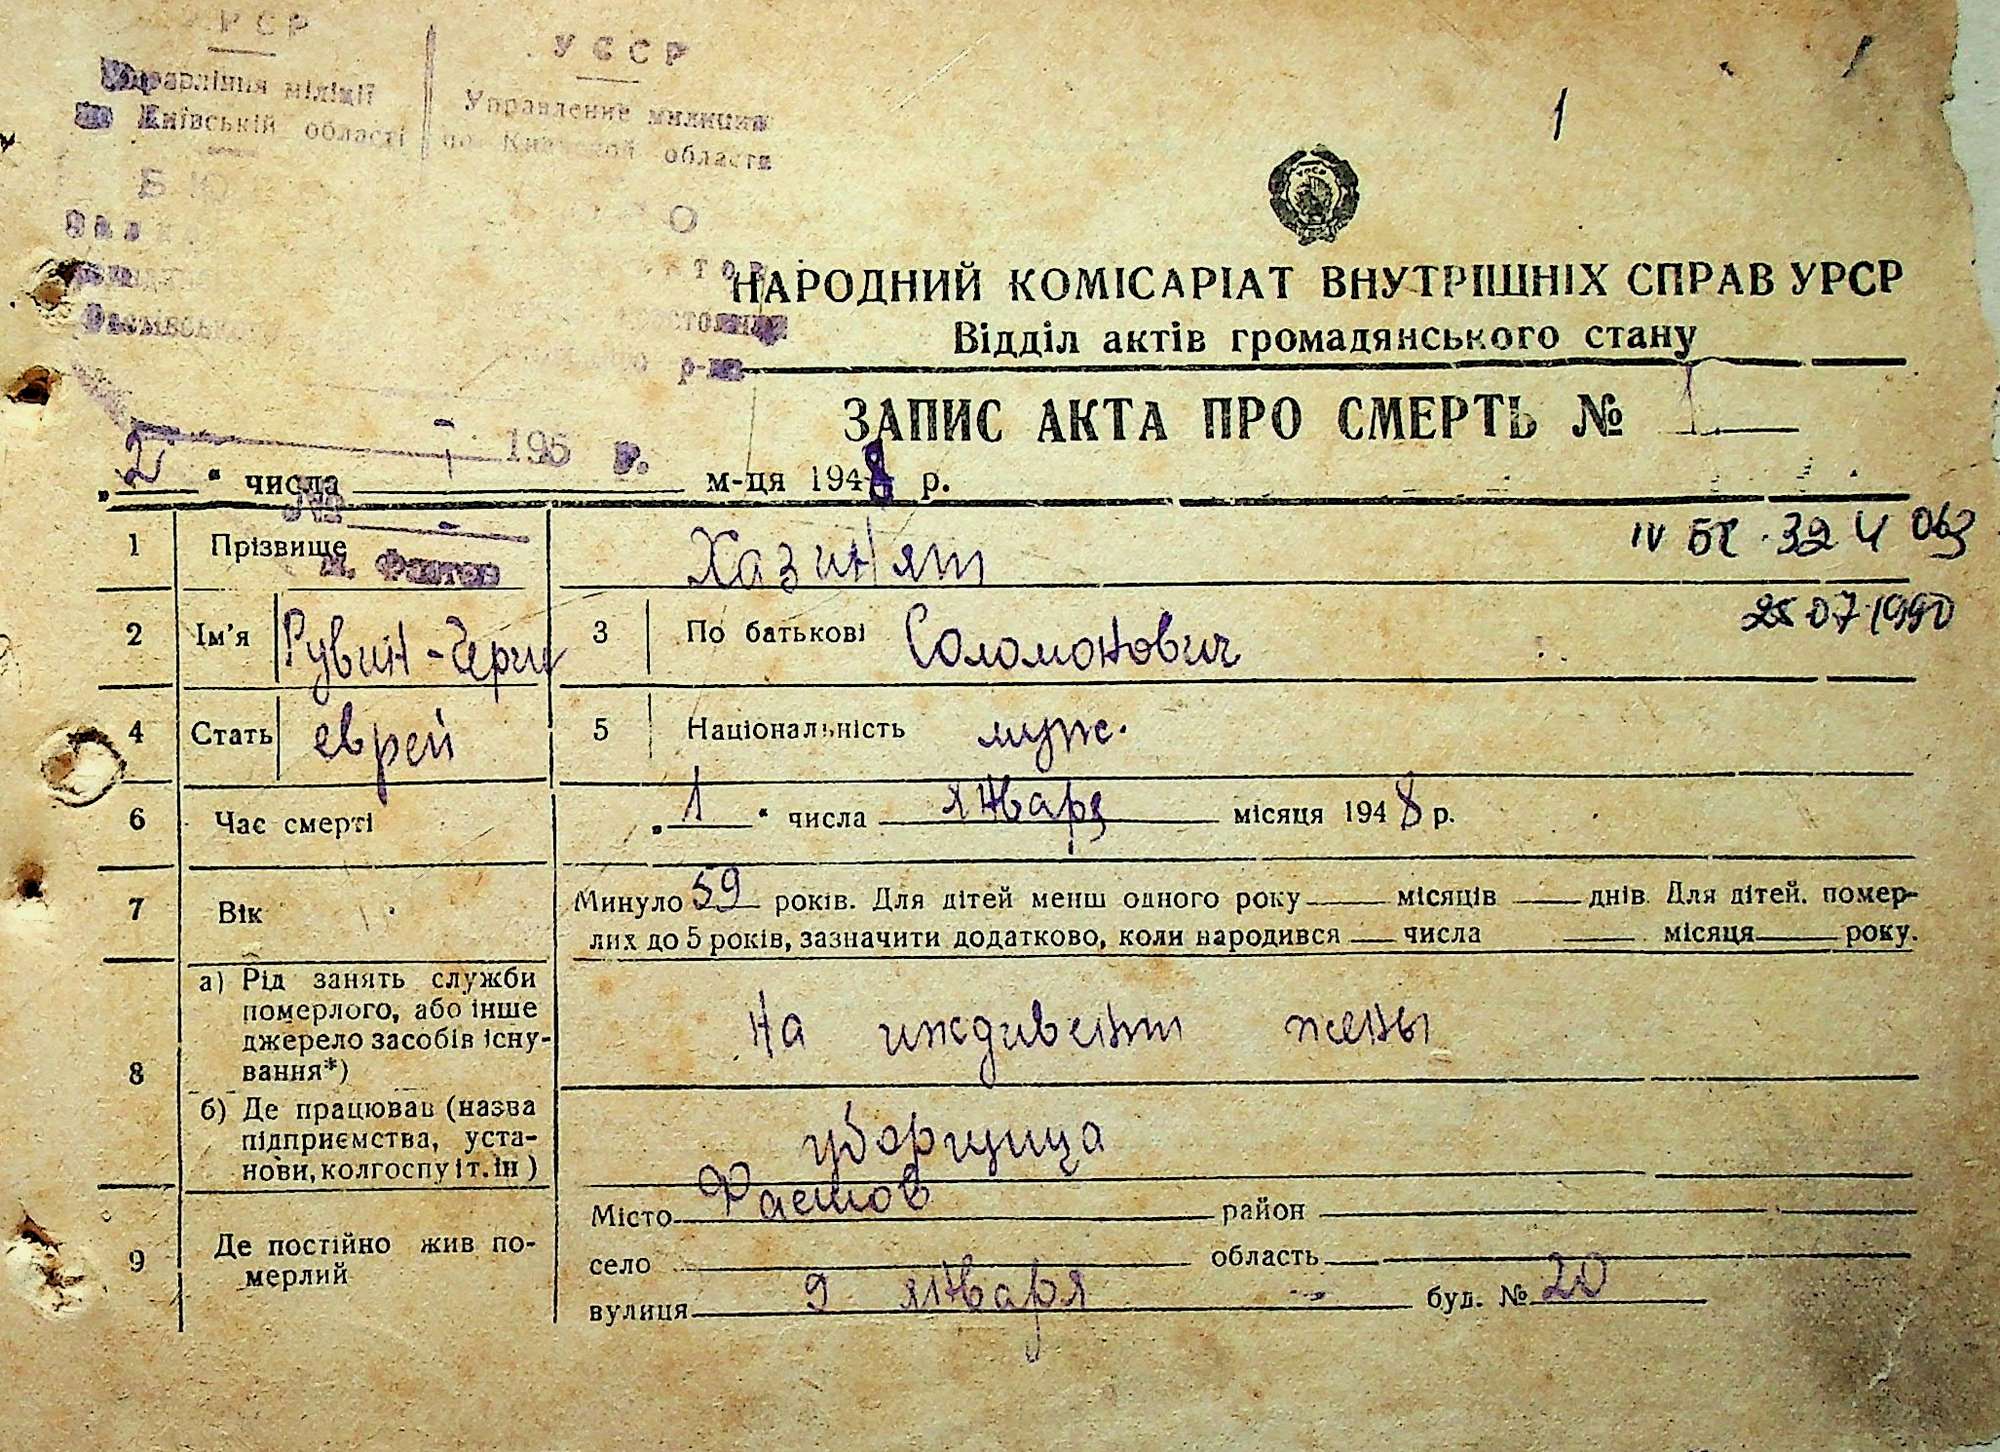 УРСР
УССР
Управління міліції
Управление милиции
по Київській області
по Киевской области
195 р.
№
м. Фастов
1
УРСР
НАРОДНИЙ КОМІСАРІАТ ВНУТРІШНІХ СПРАВ УРСР
Відділ актів громадянського стану
ЗАПИС АКТА ПРО СМЕРТЬ № 1
„2“ числа 1 м-ця 1948 р.
1 Прізвище Хазинят
IV БК 324063
2 Ім'я Рувин-Герш 3 По батькові Соломонович
25 07 1990
4 Стать еврей 5 Національність муж.
6 Час смерті „1“ числа января місяця 1948 р.
7 Вік Минуло 59 років. Для дітей менш одного року місяців днів. Для дітей, помер-
лих до 5 років, зазначити додатково, коли народився числа місяця року.
8 а) Рід занять служби
померлого, або інше
джерело засобів існу-
вання*)
на иждивении жены
б) Де працював (назва
підприємства, уста-
нови, колгоспу і т. ін)
уборщица
9 Де постійно жив по-
мерлий
Місто Фастов район
село область
вулиця 9 января буд. № 20